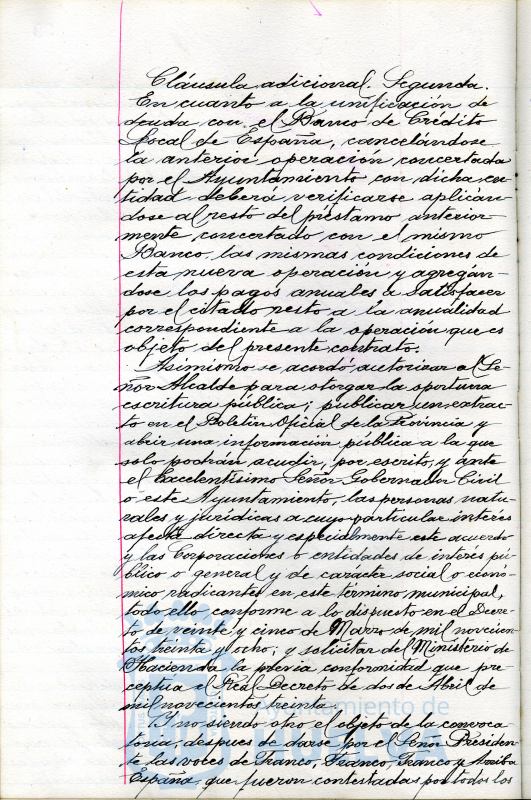 Cláusula adicional. Segunda.
En cuanto a la unificación de
deuda con el Banco de Crédito
Local de España, cancelándose
la anterior operación concertada
por el Ayuntamiento con dicha en-
tidad deberá verificarse aplican-
dose al resto del préstamo anterior-
mente concertado con el mismo
Banco, las mismas condiciones de
esta nueva operación y agregán-
dose los pagos anuales a satisfacer
por el citado resto a la anualidad
correspondiente a la operación que es
objeto del presente contrato.
Asimismo se acordó autorizar al Se-
ñor Alcalde para otorgar la oportuna
escritura pública; publicar un extrac-
to en el Boletin Oficial de la Provincia y
abrir una información pública a la que
solo podrán acudir, por escrito, y ante
el Excelentísimo Señor Gobernador Civil
o este Ayuntamiento, las personas natu-
rales y jurídicas a cuyo particular interés
afecta directa y especialmente este acuerdo
y las Corporaciones o entidades de interés pú-
blico o general y de carácter social o econó-
mico radicantes en este término municipal,
todo ello conforme a lo dispuesto en el Decre-
to de veinte y cinco de Marzo de mil novecien-
tos treinta y ocho; y solicitar del Ministerio de
Hacienda la previa conformidad que pre-
ceptúa el Real Decreto de dos de Abril de
mil novecientos treinta.
Ayuntamiento de
HUELVA
Y no siendo otro el objeto de la convoca
toria, despues de darse por el Señor Presiden-
te las voces de Franco, Franco, Franco y Arriba
España, que fueron contestadas por todos los